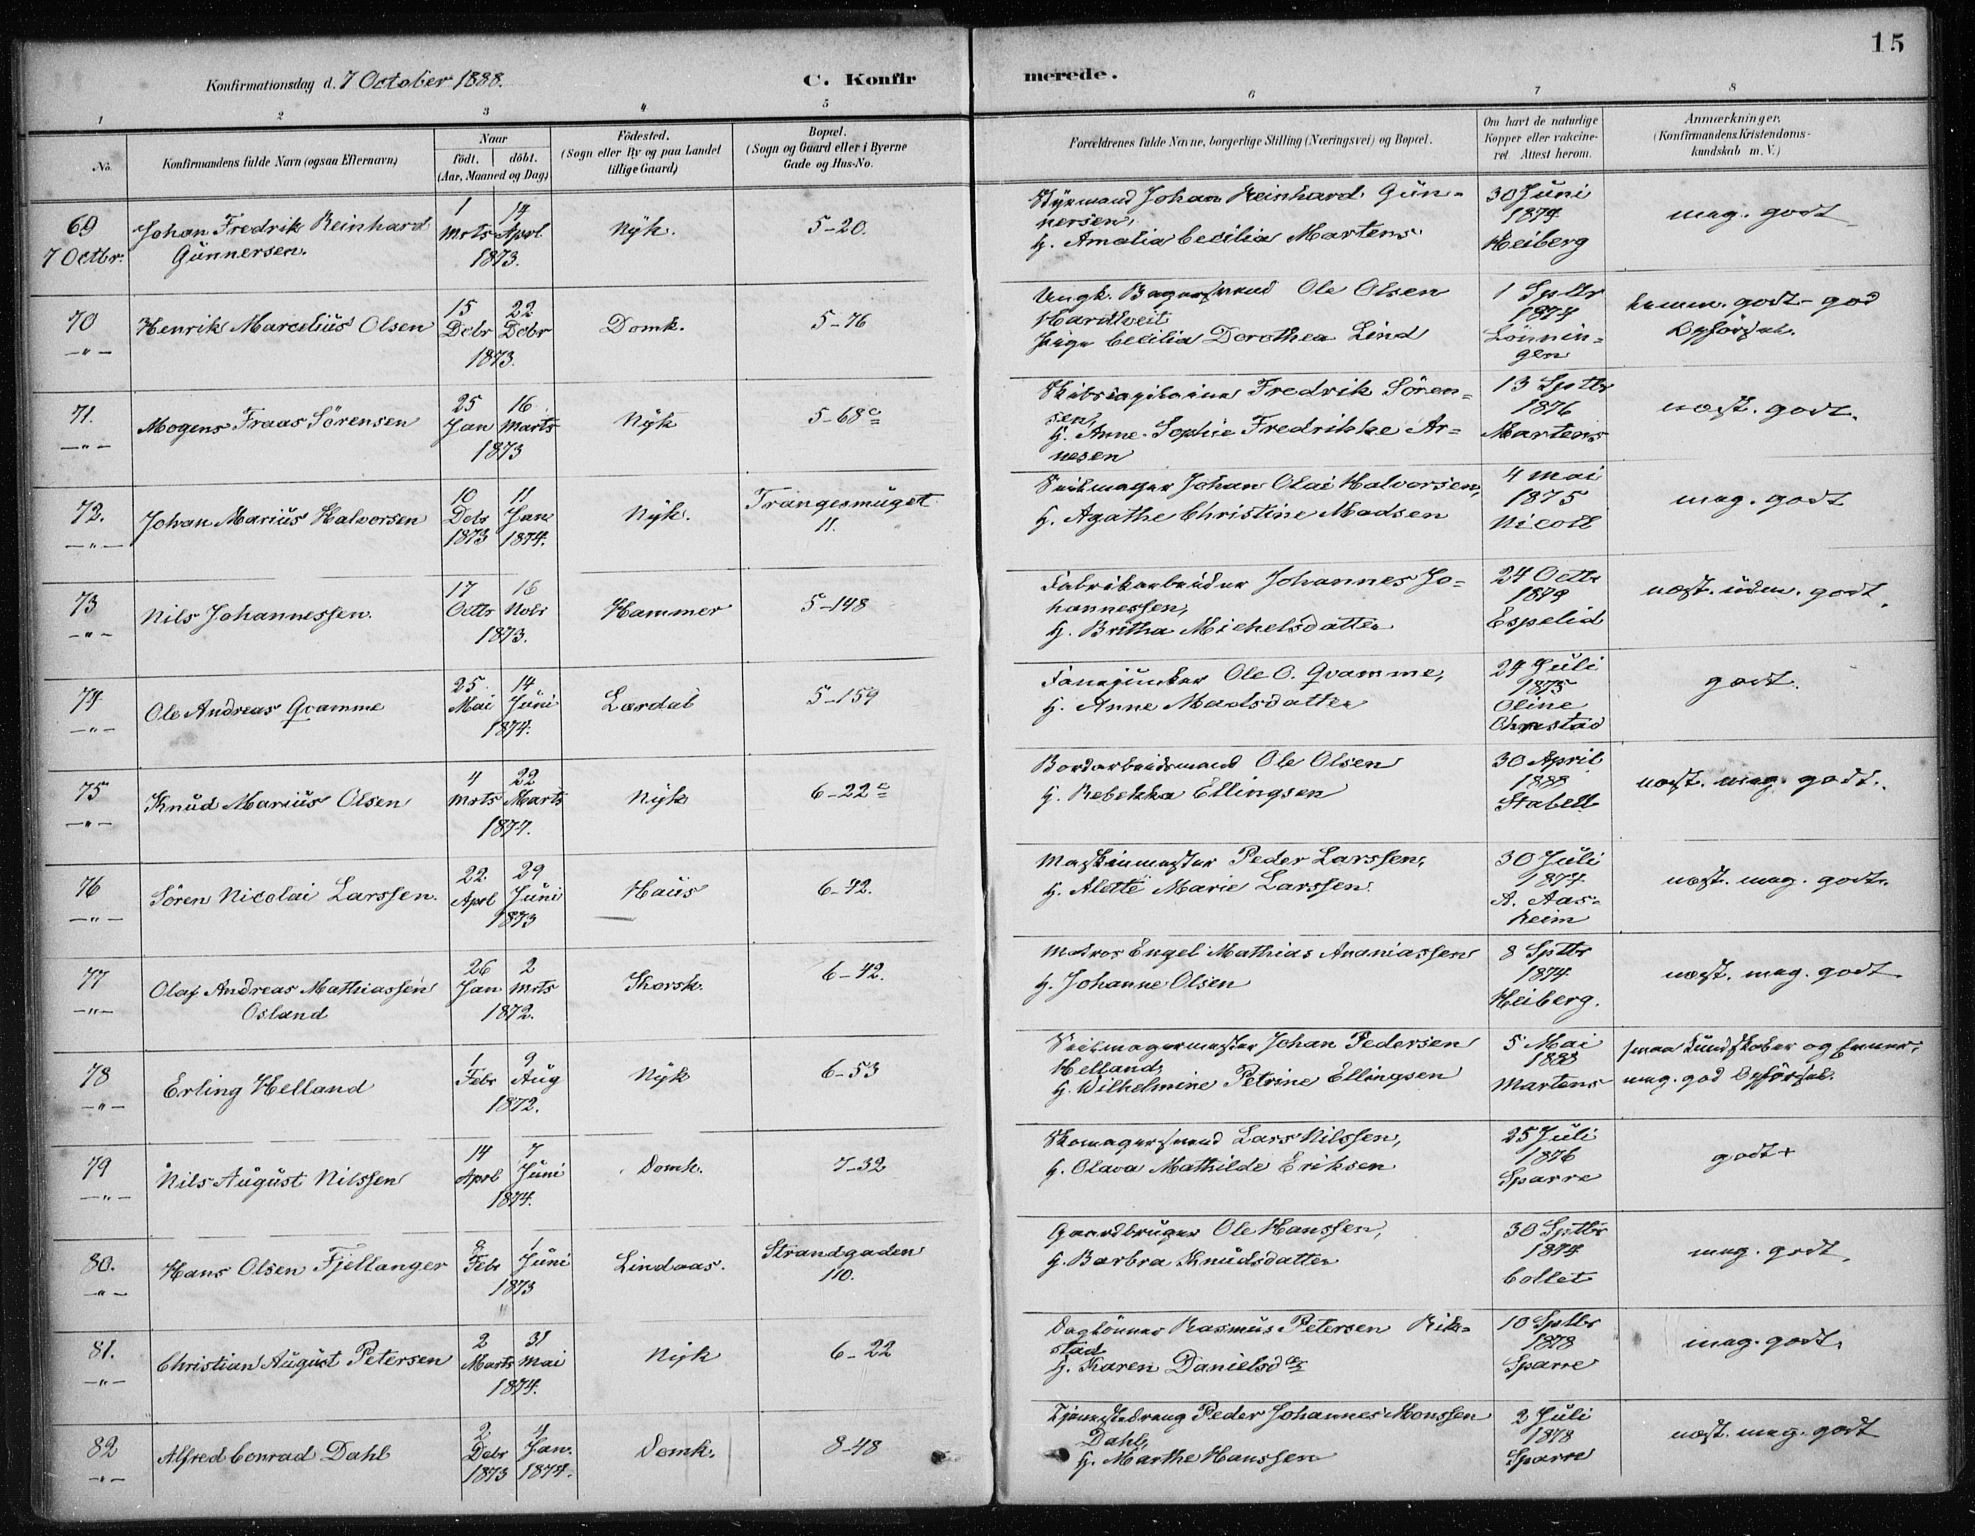 15
Konfirmationsdag d. 7 October 1888.
C. Konfirmerede.
1 2 3 4 5 6 7 8
No.
Konfirmandens fulde Navn (ogsaa Efternavn)
Naar
födt. döbt.
(Aar, Maaned og Dag)
Födested.
(Sogn eller By og paa Landet
tillige Gaard)
Bopæl.
(Sogn og Gaard eller i Byerne
Gade og Hus-No.
Forældrenes fulde Navne, borgerlige Stilling (Næringsvei) og Bopæl.
Om havt de naturlige
Kopper eller vakcine-
ret. Attest herom.
Anmærkninger.
(Konfirmandens Kristendoms-
kundskab m. V.)
69
7 Octbr.
Johan Fredrik Reinhard
Günnersen.
1 Mrts 14 Aprl
1873.
Nyk.
5-20.
Styrmand Johan Reinhard Gün-
nersen,
H. Amalia Cecilia Martens.
30 Juni
1874
Heiberg
meg. godt
70
-"-
Henrik Marcelius Olsen
15 Debr 22 Debr
1873.
Domk.
5-76
Ungk. Bagersvend Ole Olsen
Hardtveit
Pige Cecilia Dorothea Lind
1 Sptbr
1874
Lönnin-
gen
temm. godt - god
Opförsel.
71.
-"-
Mogens Fraas Sörensen
25 Jan 16 Marts
1873
Nyk
5-68c
Skibscapitaine Fredrik Sören-
sen,
H. Anne Sophie Fredrikke Ar-
nesen
13 Sptbr
1876
Martens
næst. godt.
72.
-"-
Johan Marius Halvorsen
10 Debr 1873
11 Jan 1874.
Nyk.
Trangesmuget
11.
Seilmager Johan Olai Halvorsen,
H. Agathe Christine Madsen
4 Mai
1875
Nicoll
meg. godt
73
-"-
Nils Johannessen.
17 Octbr 16 Nobr
1873.
Hammer
5-148
Fabrikarbeider Johannes Jo-
hannessen,
H. Britha Michelsdatter
24 Octbr
1874
Espelid
næst. udm. godt.
74
-"-
Ole Andreas Qvamme
25 Mai 14 Juni
1874.
Lærdal
5-159
Fanejunker Ole O. Qvamme,
H. Anne Madsdatter
24 Juli
1875
Oline
Chrastad
godt.
75
-"-
Knud Marius Olsen
4 Mrts 22 Marts
1874.
Nyk
6-22c
Bordarbeidsmand Ole Olsen
H. Rebekka Ellingsen
30 April
1888
Stabell
næst. meg. godt.
76
-"-
Sören Nicolai Larssen.
22 Aprl 29 Juni
1873
Haus
6-42.
Maskinmester Peder Larssen,
H. Alette Marie Larssen.
30 Juli
1874
A. Aas-
heim
næst. meg. godt.
77
-"-
Olaf Andreas Mathiassen
Osland
26 Jan 2 Mrts
1872.
Korsk.
6-42.
Matros Engel Mathias Ananiassen
H. Johanne Olsen
8 Sptbr
1874
Heiberg.
næst. meg. godt
78
-"-
Erling Helland
1 Febr 9 Aug
1872.
Nyk
6-53
Seilmagermester Johan Pedersen
Helland,
H. Wilhelmine Petrine Ellingsen
5 Mai
1888
Martens
smaa Kundskaber og Evner,
meg. god Opförsel.
79
-"-
Nils August Nilssen
14 Aprl 7 Juni
1874.
Domk.
7-32
Skomagersvend Lars Nilssen,
H. Olava Mathilde Eriksen
25 Juli
1876
Sparre
godt+
80.
-"-
Hans Olsen Fjellanger
9 Febr 1 Juni
1873
Lindaas.
Strandgaden
110.
Gaardbruger Ole Hanssen,
H. Barbra Knudsdatter
30 Sptbr
1874
Collet
meg. godt.
81.
-"-
Christian August Petersen
2 Marts 31 Mai
1874.
Nyk
6-22
Daglönner Rasmus Petersen Rik-
stad
H. Karen Danielsdtr
10 Sptbr
1878
Sparre
meg. godt.
82
-"-
Alfred Conrad Dahl
2 Debr 1873
4 Jan. 1874.
Domk.
8-48
Tjenestedreng Peder Johannes Monssen
Dahl,
H. Marthe Hanssen
2 Juli
1878
Sparre
næst. meg. godt